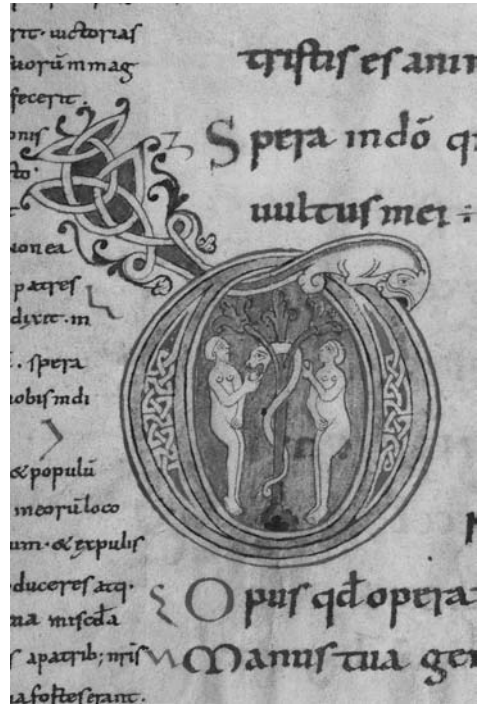 rit· uictorias
uorū mmag
fecerit.
onis
patres
dixit·in
spera
nobis indi
& populū
meorū loco
um· & expulis
duceres atq·
apatrib; nr̄is
tristis es ani
Spera in dō q
uultus mei ÷
Opus qđ opera
Manus tua ge